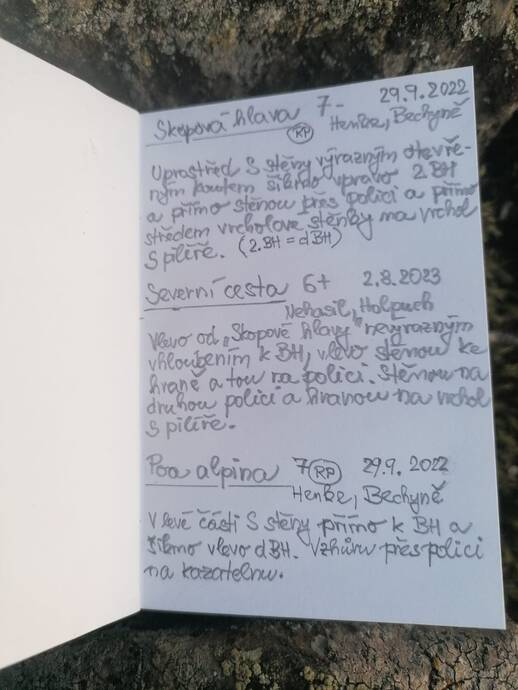 Skopová hlava 7- 29.9.2022
RP Henke, Bechyně
Uprostřed S stěny výrazným otevře-
ným koutem šikmo vpravo 2 BH
a přímo stěnou přes polici a přímo
středem vrcholové stěnky na vrchol
S pilíře. (2.BH = dBH)
Severní cesta 6+ 2.8.2023
Nehasil, Holpuch
Vlevo od „Skopové hlavy" nevýrazným
vhloubením k BH, vlevo stěnou ke
hraně a tou na polici. Stěnou na
druhou polici a hranou na vrchol
S pilíře.
Poa alpina 7 RP 29.9.2022
Henke, Bechyně
V levé části S stěny přímo k BH a
šikmo vlevo dBH. Vzhůru přes polici
na kazatelnu.